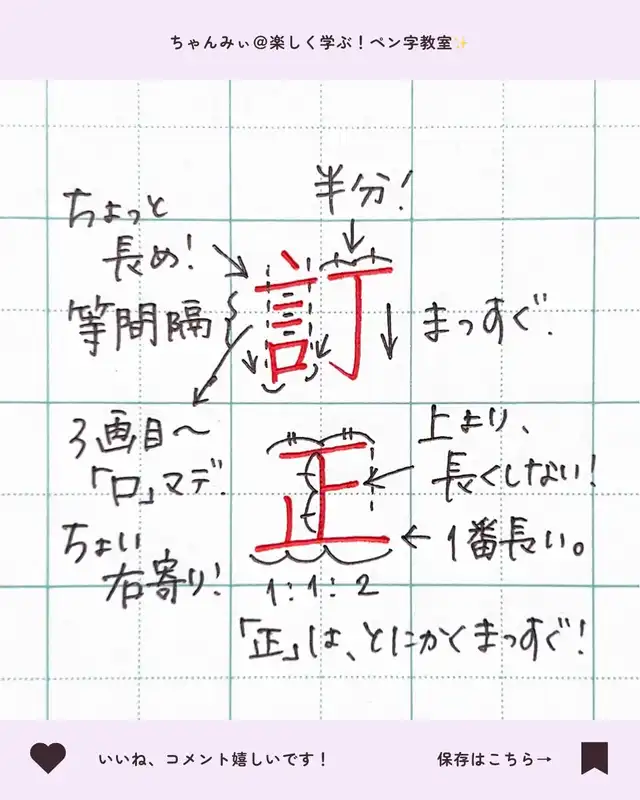 ちゃんみぃ@楽しく学ぶ!ペン字教室✨
半分!
ちょっと
長め!
等間隔
訂
まっすぐ.
3画目~
「口」マデ.
ちょい
右寄り!
正
上より、
長くしない!
←1番長い。
1:1:2
「正」は、とにかくまっすぐ!
いいね、コメント嬉しいです!
保存はこちら→